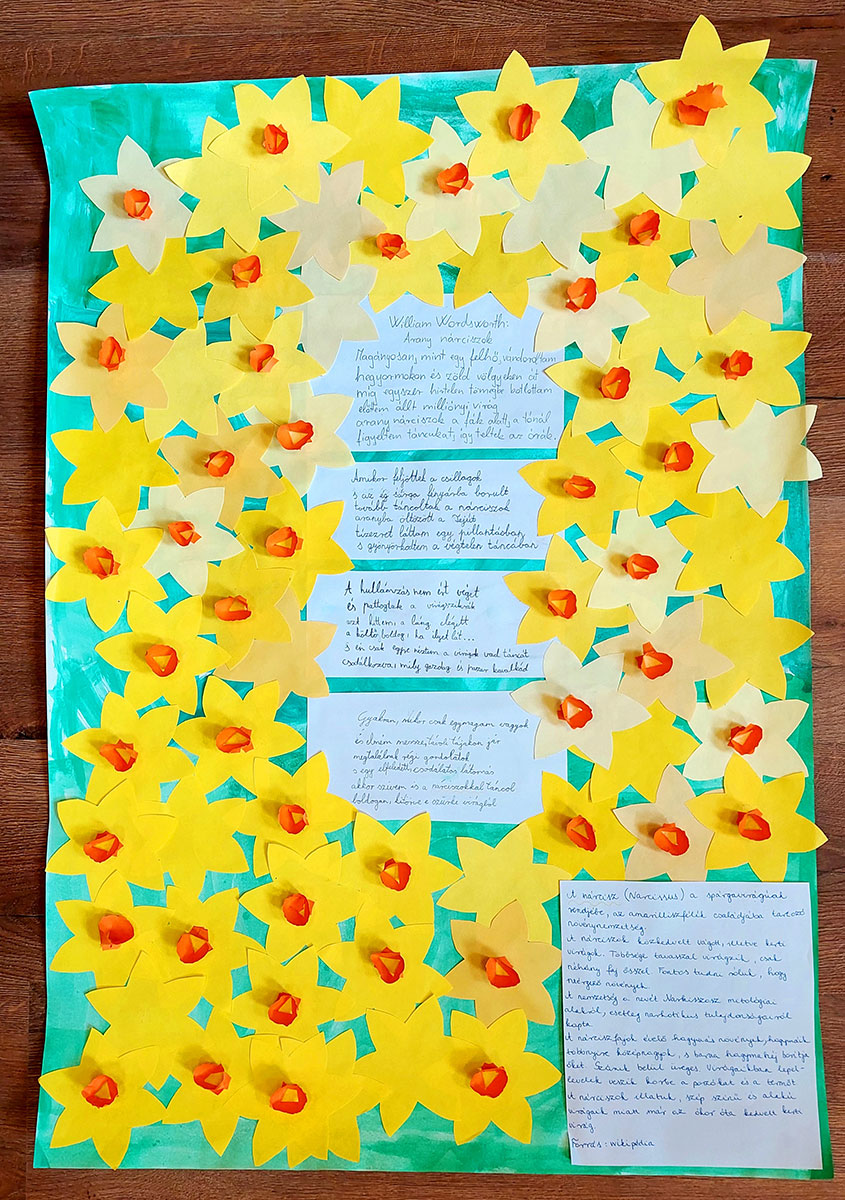 William Wordsworth:
Arany nárciszok
Magányosan, mint egy felhő, vándoroltam
hegyormokon és zöld völgyeken át
míg egyszer hirtelen tömegbe botlottam
előttem állt milliónyi virág
arany nárciszok a fák alatt, a tónál
figyeltem táncukat, így teltek az órák.
Amikor feljöttek a csillagok
s az ég sárga fényárba borult
tovább táncoltak a nárciszok
aranyba öltözött a Tejút
tízezret láttam egy pillantásban
s gyönyörködtem a végtelen táncában
A hullámzás nem ért véget
és pattogtak a virágszikrák
azt hittem, a láng elégett
a költő boldog, ha ilyet lát...
s én csak egyre néztem a virágok vad táncát
csodálkozva, mily gazdag és puszta kavalkád
Gyakran, mikor csak egymagam vagyok
és elmém messzi tájakon jár
megtalálnak régi gondolatok
s egy elfeledett, csodálatos látomás
akkor szívem és a nárciszokkal táncol
boldogan, kitörve e szürke világból
A nárcisz (Narcissus) a spárgavirágúak
rendjébe, az amarilliszfélék családjába tartozó
növénynemzetség.
A nárciszok közkedvelt vágott, illetve kerti
virágok. Többsége tavasszal virágzik, csak
néhány faj ősszel. Fontos tudni róluk, hogy
mérgező növények.
A nemzetség a nevét Narkisszosz mitológiai
alakról, esetleg narkotikus tulajdonságairól
kapta.
A nárciszfajok évelő, hagymás növények, hagymáik
többnyire középnagyok, s barna hagymahéj borítja
őket. Száruk belül üreges. Virágaikban lepel-
levelek veszik körbe a porzókat és a termőt.
A nárciszok illatuk, szép színű és alakú
virágaik miatt már az ókor óta kedvelt kerti
virág.
Forrás: wikipédia